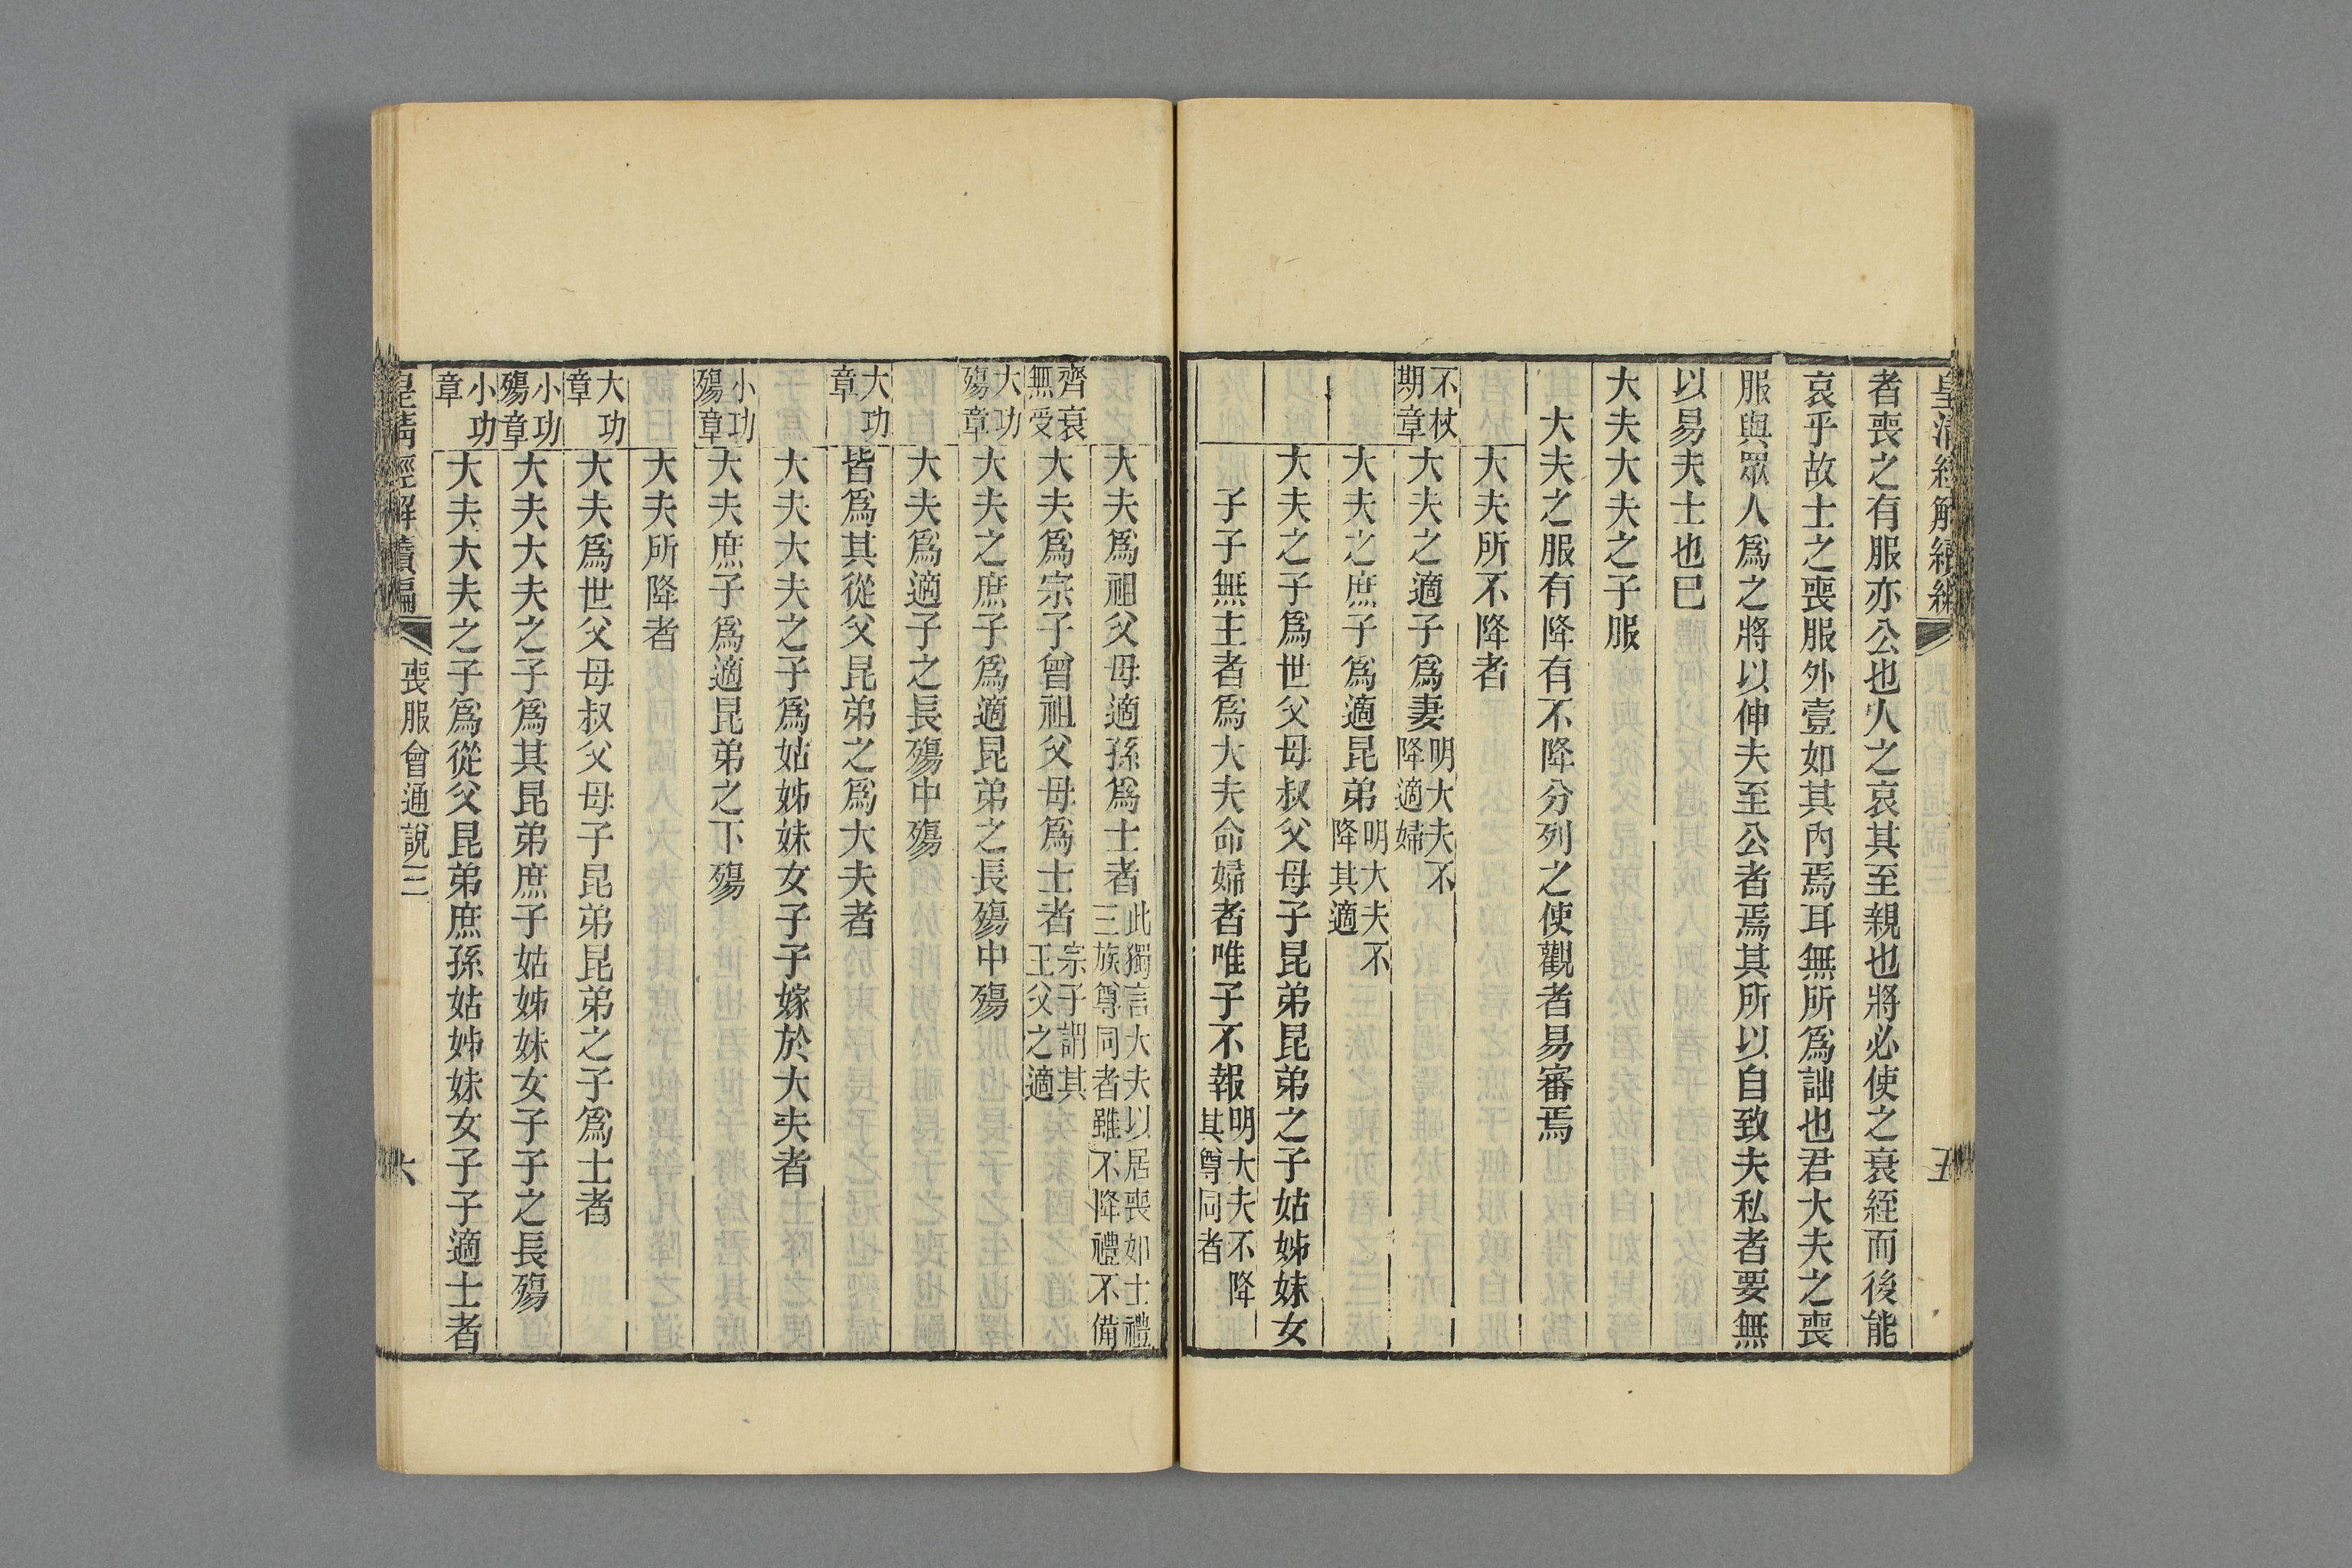 皇清經解續編 五
者喪之有服亦公也人之哀其至親也將必使之衰絰而後能
哀乎故士之喪服外壹如其內焉耳無所爲詘也君大夫之喪
服與眾人爲之將以伸夫至公者焉其所以自致夫私者要無
以易夫士也巳
大夫大夫之子服
大夫之服有降有不降分列之使觀者易審焉
大夫所不降者
不杖期章 大夫之適子爲妻 明大夫不降適婦
大夫之庶子爲適昆弟 明大夫不降其適
大夫之子爲世父母叔父母子昆弟昆弟之子姑姊妹女
子子無主者爲大夫命婦者唯子不報 明大夫不降其尊同者
大夫爲祖父母適孫爲士者 此獨言大夫以居喪如士禮三族尊同者雖不降禮不備
齊衰無受 大夫爲宗子曾祖父母爲士者 宗子謂其王父之適
大功殤章 大夫之庶子爲適昆弟之長殤中殤
大夫爲適子之長殤中殤
大功章 皆爲其從父昆弟之爲大夫者
大夫大夫之子爲姑姊妹女子子嫁於大夫者
小功殤章 大夫庶子爲適昆弟之下殤
大夫所降者
大功章 大夫爲世父母叔父母子昆弟昆弟之子爲士者
小功殤章 大夫大夫之子爲其昆弟庶子姑姊妹女子子之長殤
小功章 大夫大夫之子爲從父昆弟庶孫姑姊妹女子子適士者
皇清經解續編 喪服會通說三 六